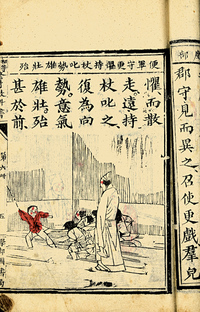 郡守見而異之召使更戲羣兒
守更懼持杖叱勢雄壯殆
懼而散
走遠持
杖叱之
復為向
勢意氣
雄壯殆
甚於前
五